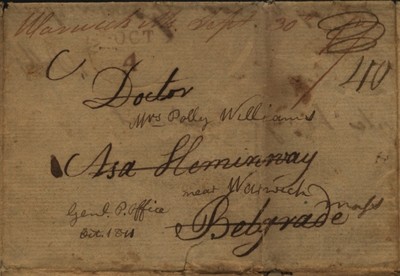 Warwick Sept. 30
OCT
4
40
Doctor
Mrs Polly Williams
Asa Heminway
near Warwick
Mass
Genl. P. Office
Belgrade
Oct. 1811